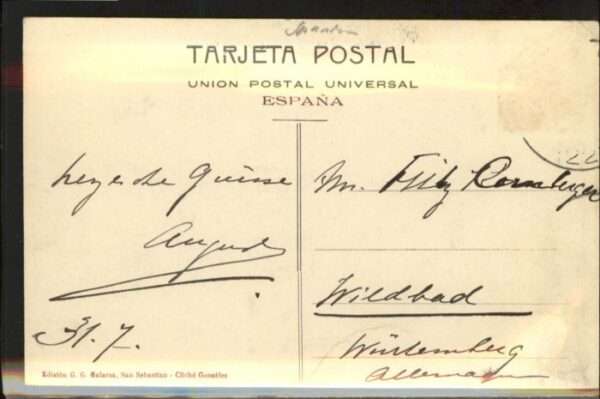 TARJETA POSTAL
UNION POSTAL UNIVERSAL
ESPAÑA
Grüsse
August
31.7.
Fritz
Wildbad
Württemberg
Allemagne
Edición G. G. Galarza, San Sebastian - Cliché González
22